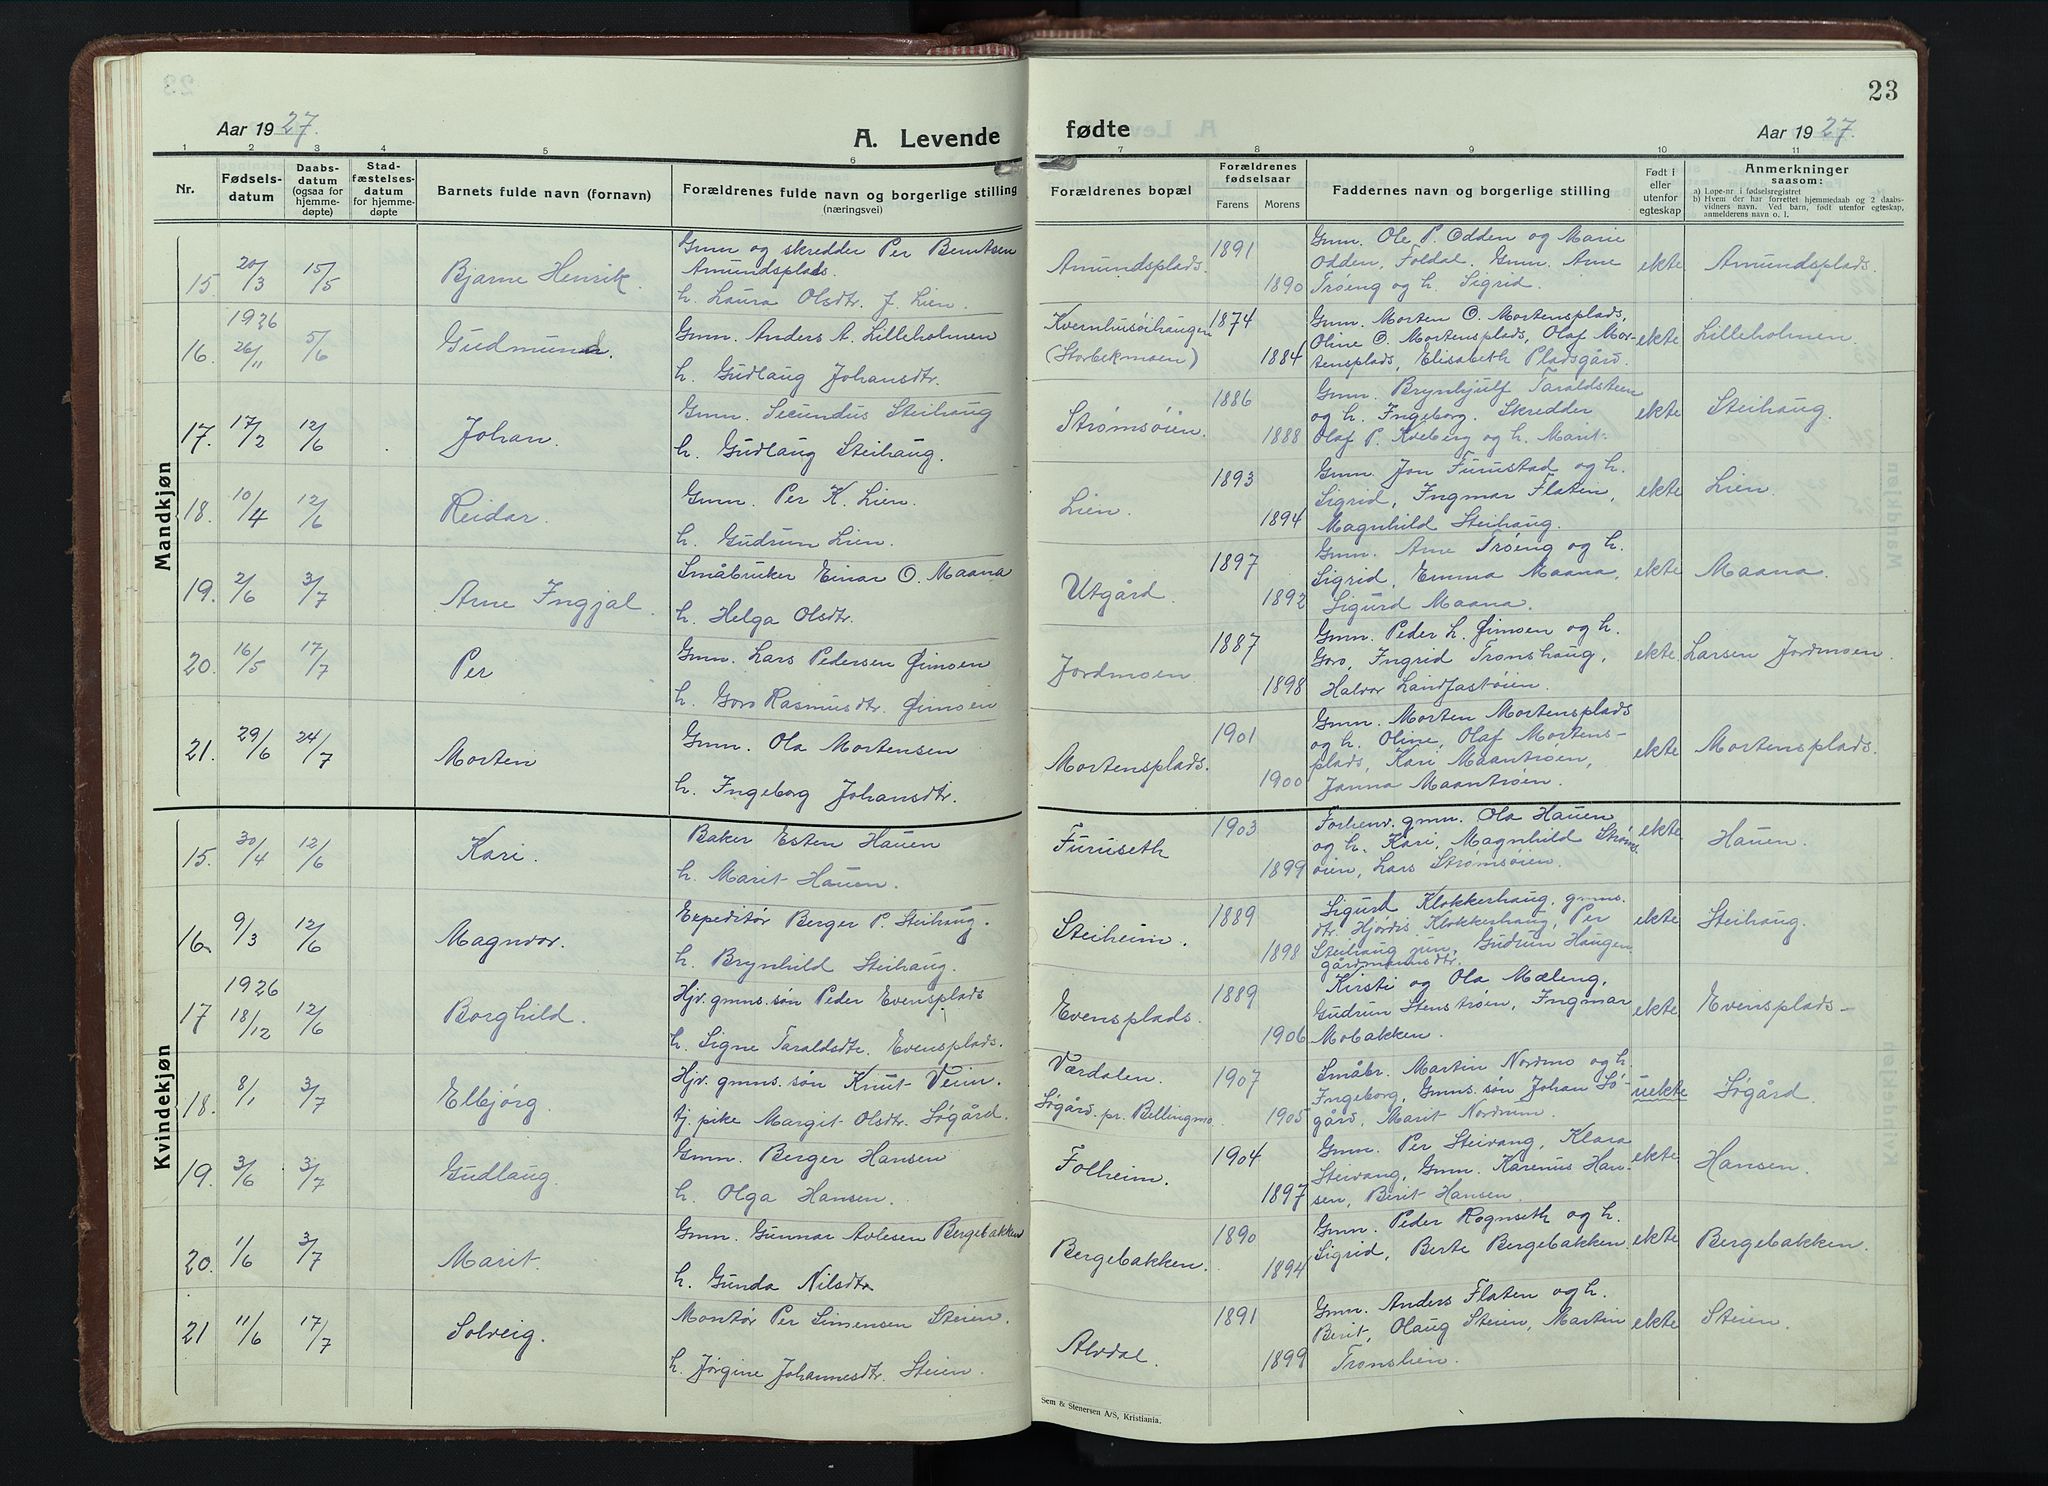 23
Aar 1927.
A. Levende
fødte
Aar 1927.
1 2 3 4 5 6 7 8 9 10 11
Nr.
Fødselsdatum
Daabsdatum (ogsaa for hjemmedøpte)
Stadfæstelsesdatum for hjemmedøpte
Barnets fulde navn (fornavn)
Forældrenes fulde navn og borgerlige stilling (næringsvei)
Forældrenes bopæl
Forældrenes fødselsaar
Farens Morens
Faddernes navn og borgerlige stilling
Født i eller utenfor egteskap
Anmerkninger saasom:
a) Løpe-nr. i fødselsregistret
b) Hvem der har forrettet hjemmedaab og 2 daabsvidners navn. Ved barn, født utenfor egteskap, anmelderens navn o. l.
Mandkjøn
15. 20/3 15/5 Bjarne Henrik.
Gmn og skredder Per Berntsen
Amundsplads.
h. Laura Olsdtr. f. Lien.
Amundsplads. 1891 1890
Gmn. Ole P. Odden og Marie
Odden, Foldal. Gmn. Arne
Trøeng og h. Sigrid.
ekte Amundsplads.
16. 1926 26/11 5/6 Gudmund.
Gmn. Anders A. Lilleholmen
h. Gudlaug Johansdtr.
Kvernhusøihaugen
(Storbekmoen)
1874 1884
Gmn. Morten O. Mortensplads,
Oline O. Mortensplads, Olaf Mor-
tensplads, Elisabeth Pladsgård.
ekte Lilleholmen.
17. 17/2 12/6 Johan.
Gmn. Secundus Steihaug
h. Gudlaug Steihaug.
Strømsøien. 1886 1888
Gmn. Brynhjulf Taraldsteen
og h. Ingeborg. Skredder
Olaf P. Kveberg og h. Marit.
ekte Steihaug.
18. 10/4 12/6 Reidar.
Gmn. Per K. Lien.
h. Gudrun Lien.
Lien. 1893 1894
Gmn. Jon Furustad og h.
Sigrid, Ingmar Flaten,
Magnhild Steihaug.
ekte Lien.
19. 2/6 3/7 Arne Ingjal.
Småbruker Einar O. Maana
h. Helga Olsdtr.
Utgård. 1897 1892
Gmn. Arne Trøeng og h.
Sigrid, Emma Maana,
Sigurd Maana.
ekte Maana.
20. 16/5 17/7 Per
Gmn. Lars Pedersen Øimoen
h. Goro Rasmusdtr. Øimoen
Jordmoen 1887 1898
Gmn. Peder L. Øimoen og h.
Goro, Ingrid Tronshaug,
Halvor Landfastøien.
ekte Larsen Jordmoen.
21. 29/6 24/7 Morten
Gmn. Ola Mortensen
h. Ingeborg Johansdtr.
Mortensplads. 1901 1900
Gmn. Morten Mortensplads
og h. Oline, Olaf Mortens-
plads, Kari Maantrøen,
Janna Maantrøen.
ekte Mortensplads.
Kvindekjøn
15. 30/4 12/6 Kari.
Baker Esten Hauen
h. Marit Hauen.
Furuseth 1903 1899
Forhenv. gmn. Ola Hauen
og h. Kari, Magnhild Strøms-
øien, Lars Strømsøien.
ekte Hauen.
16. 9/3 12/6 Magnvor.
Expeditør Berger P. Steihaug.
h. Brynhild Steihaug.
Steiheim. 1889 1898
Sigurd Klokkerhaug, gmns.
dtr. Hjørdis Klokkerhaug, Per
Steihaug jun, Gudrun Haugen
gårdmannsdtr.
ekte Steihaug.
17 1926 18/12 12/6 Borghild.
Hjv. gmns. søn Peder Evensplads
h. Signe Taraldsdtr. Evensplads.
Evensplads. 1889 1906
Kirsti og Ola Mæleng,
Gudrun Stenstrøen, Ingmar
Mobakken.
ekte Evensplads
18. 8/1 3/7 Elbjørg.
Hjv. gmns. søn Knut Veim.
Tj. pike Margit Olsdtr. Søgård.
Værdalen.
Søgård. pr. Bellingmo.
1907 1905
Småbr. Martin Nordmo og h.
Ingeborg, Gmns. søn Johan Sø-
gård, Marit Nordrum.
uekte Søgård.
19. 3/6 3/7 Gudlaug.
Gmn. Berger Hansen
h. Olga Hansen.
Folheim. 1904 1897
Gmn. Per Steivang, Klara
Steivang, Gmn. Karenus Han-
sen, Berit Hansen.
ekte Hansen.
20. 1/6 3/7 Marit.
Gmn. Gunnar Avlesen Bergebakken
h. Gunda Nilsdtr
Bergebakken. 1890 1894
Gmn. Peder Rognseth og h.
Sigrid, Berte Bergebakken.
ekte Bergebakken.
21 11/6 17/7 Solveig.
Montør Per Simensen Steien.
h. Jørgine Johannesdtr. Steien.
Alvdal. 1891 1899
Gmn. Anders Flaten og h.
Berit, Olaug Steien, Martin
Tronslien.
ekte Steien.
Sem & Stenersen A/S, Kristiania.